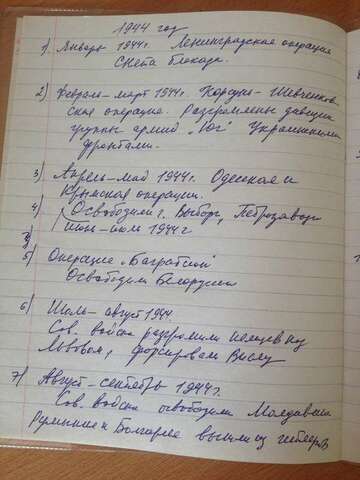 1944 год
1) Январь 1944г. Ленинградская операция
снята блокада.
2) Февраль-март 1944г. Корсунь-Шевченков-
ская операция. Разгромлены дивизии
группы армий "Юг" Украинскими
фронтами.
3) Апрель-май 1944г. Одесская и
Крымская операции.
4) Освободили г. Выборг, Петрозаводс
июнь-июль 1944г
5) Операция "Багратион"
Освободили Белоруссию
6) Июль-август 1944.
Сов. войска разгромили немцев под
Львовом, форсировали Вислу
7) Август-сентябрь 1944г.
Сов. войска освободили Молдавию
Румыния и Болгария вышли из